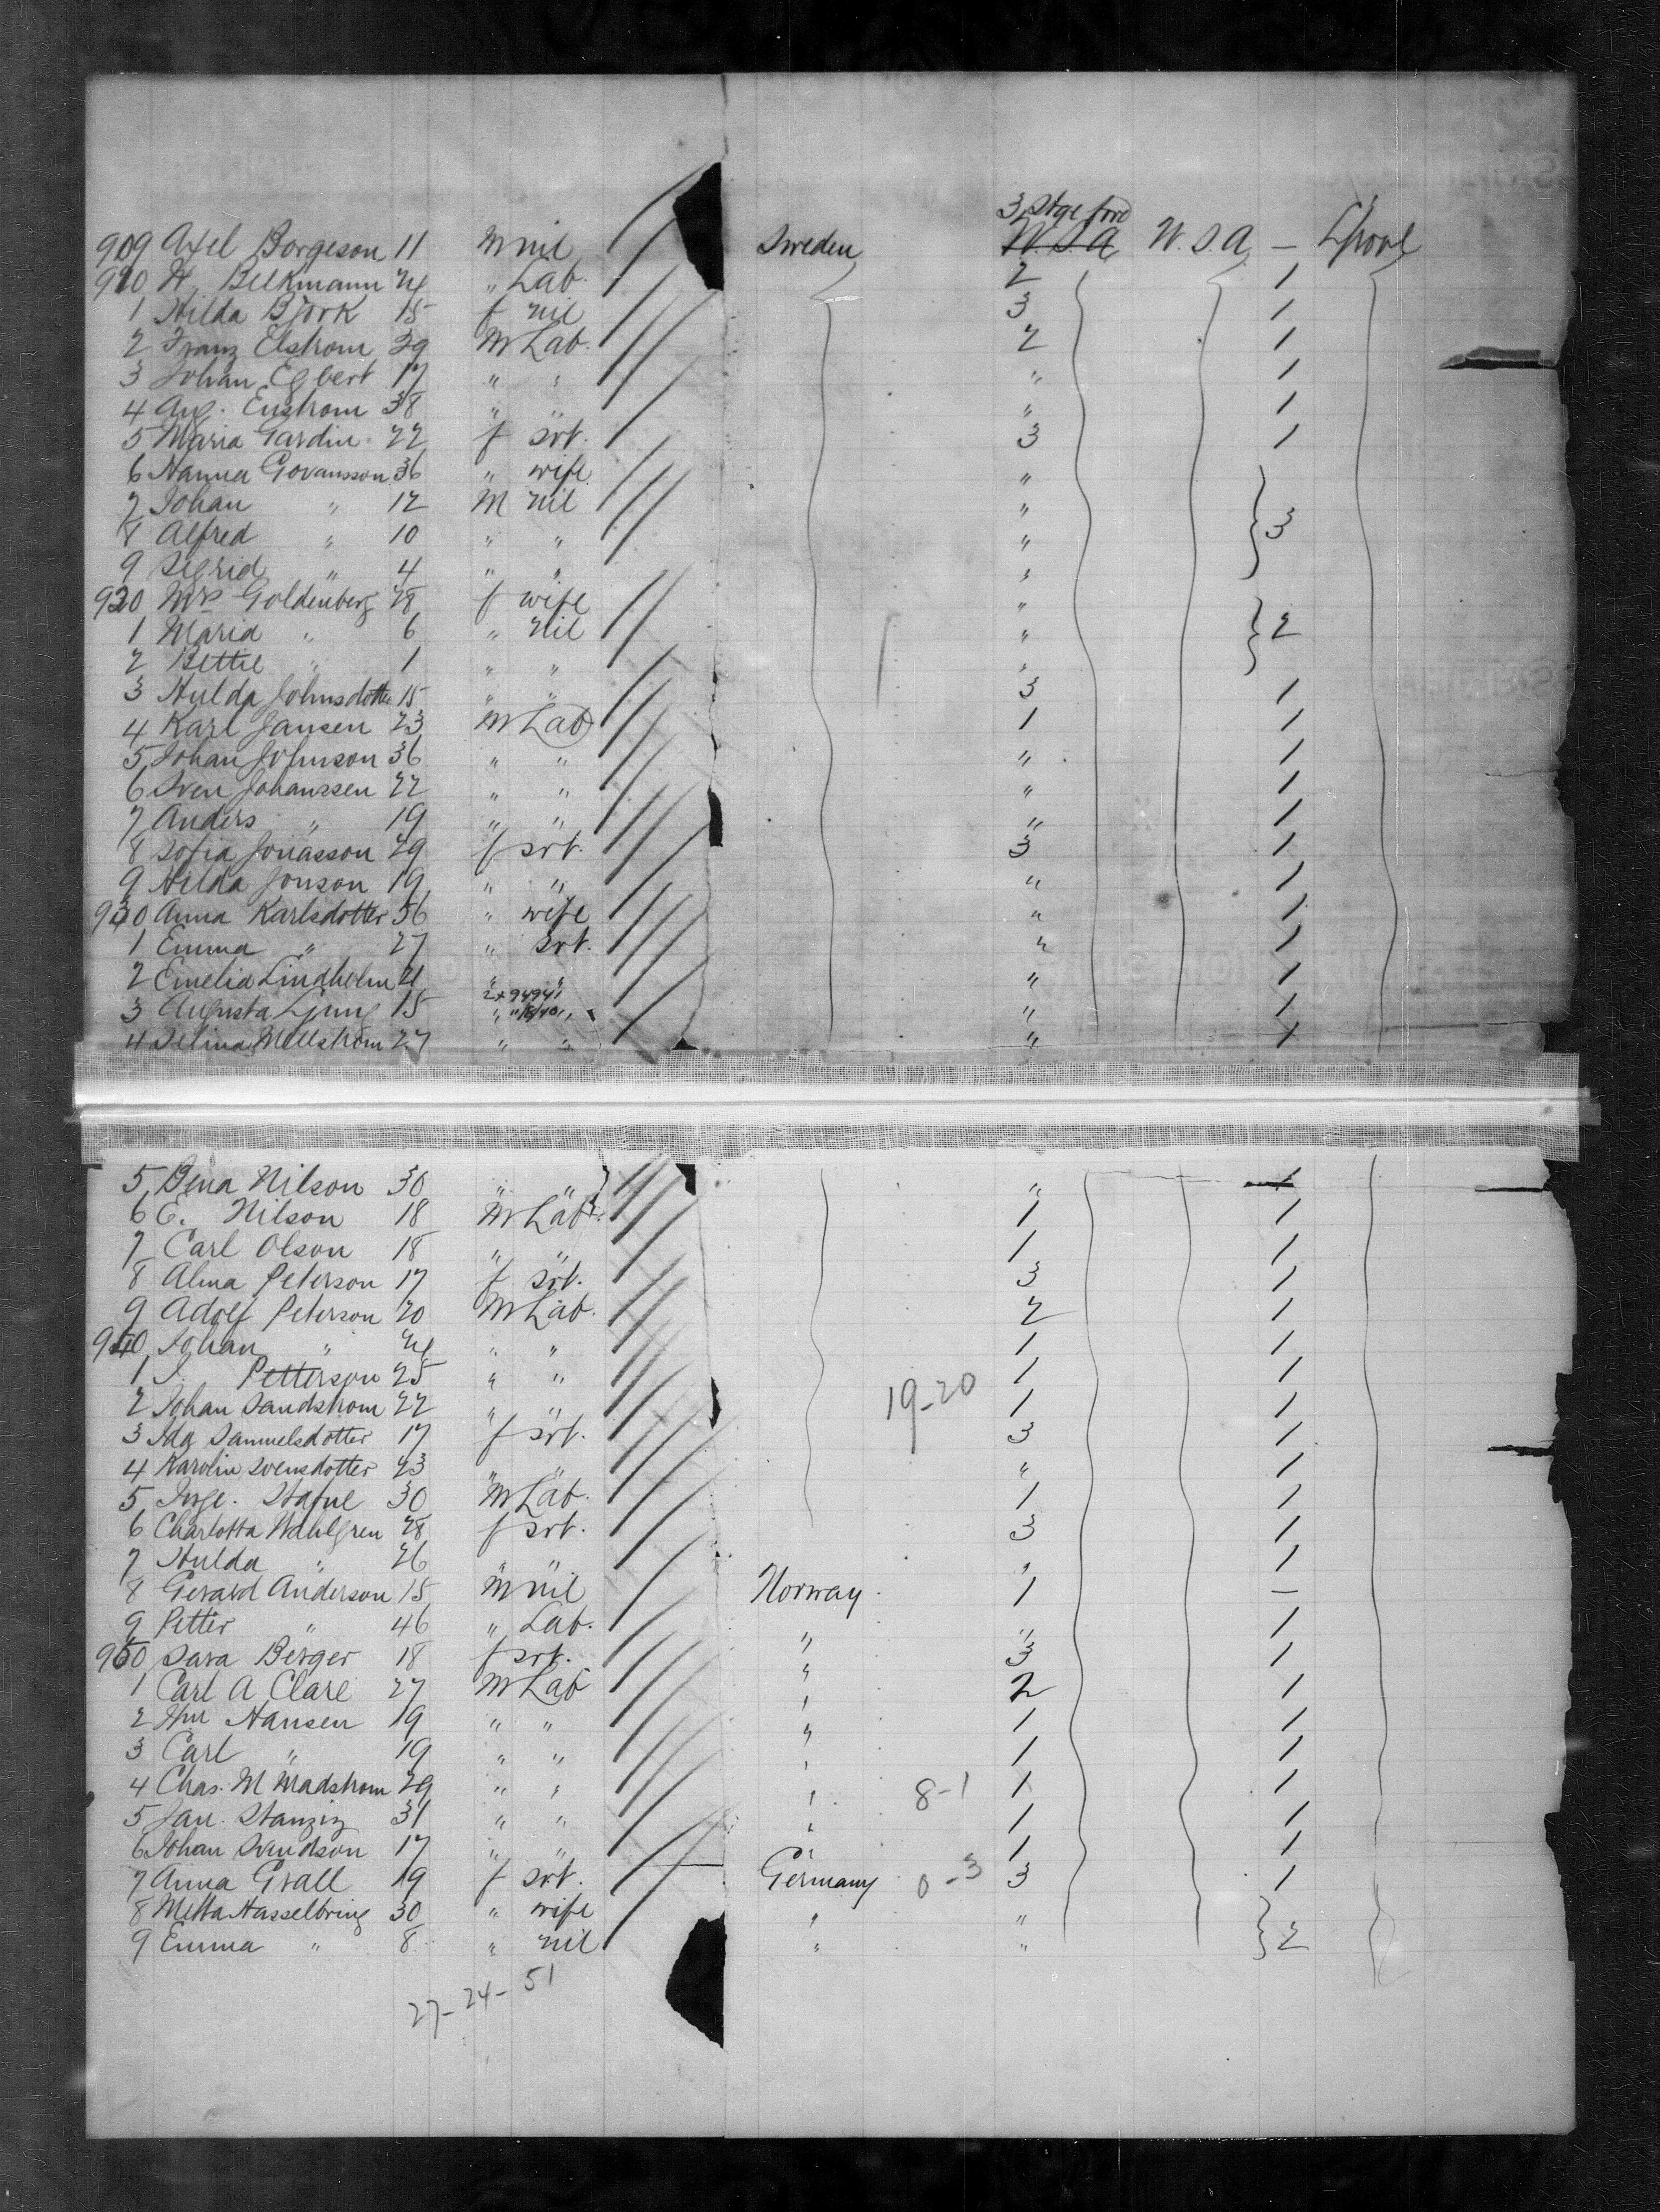 3 Stge fore
909 Axel Borgeson 11 M nil Sweden W.S.A W.S.A — Lpool
910 H. Belkmann 24 " Lab. 2 1
1 Hilda Björk 15 f nil 3 1
2 Franz Elstrom 39 M Lab. 2 1
3 Johan Egbert 17 " " " 1
4 Aug. Enstrom 38 " " " 1
5 Maria Gardin 22 f Srt. 3 1
6 Hanna Govansson 36 " wife "
7 Johan " 12 M nil "
8 Alfred " 10 " " " } 3
9 Segrid " 4 " " "
920 Mrs Goldenberg 28 f wife "
1 Maria " 6 " nil " } 2
2 Bettie " 1 " " "
3 Hulda Johnsdotter 15 " " 3 1
4 Karl Jansen 23 M Lab 1 1
5 Johan Johnson 36 " " " 1
6 Sven Johanssen 22 " " " 1
7 Anders " 19 " " " 1
8 Sofia Jonasson 29 f Srt. 3 1
9 Hilda Jonson 19 " " " 1
930 Anna Karlsdotter 56 " wife " 1
1 Emma " 27 " Srt. " 1
2 Emelia Lindholm 21 " " " 1
3 Augusta Ljung 15 " " " 1
4 Selina Mellstrom 27 " " " 1
5 Bena Nilson 30 " " " 1
6 E. Nilson 18 M Lab. 1 1
7 Carl Olson 18 " " 1 1
8 Alma Peterson 17 f Srt. 3 1
9 Adolf Peterson 20 M Lab. 2 1
940 Johan " 24 " " 1 1
1 J. Petterson 25 " " 1 1
2 Johan Sandstrom 22 " " 19-20 1 1
3 Ida Samuelsdotter 17 f Srt. 3 1
4 Karolin Svensdotter 23 " " " 1
5 Inge. Stafne 30 M Lab. 1 1
6 Charlotta Wahlgren 28 f Srt. 3 1
7 Hulda " 26 " " " 1
8 Gerard Anderson 15 M nil Norway 1 —
9 Petter " 46 " Lab. " " 1
950 Sara Berger 18 f Srt. " 3 1
1 Carl A Clare 27 M Lab " 2 1
2 Hn Hansen 19 " " " 1 1
3 Carl " 19 " " " 1 1
4 Chas. M Madstrom 29 " " " 8-1 1 1
5 Jan. Stanziz 31 " " " 1 1
6 Johan Svendson 17 " " " 1 1
7 Anna Grall 19 f Srt. Germany 0-3 3 1
8 Metta Hasselbring 30 " wife " "
9 Emma " 8 " nil " " } 2
27-24-51